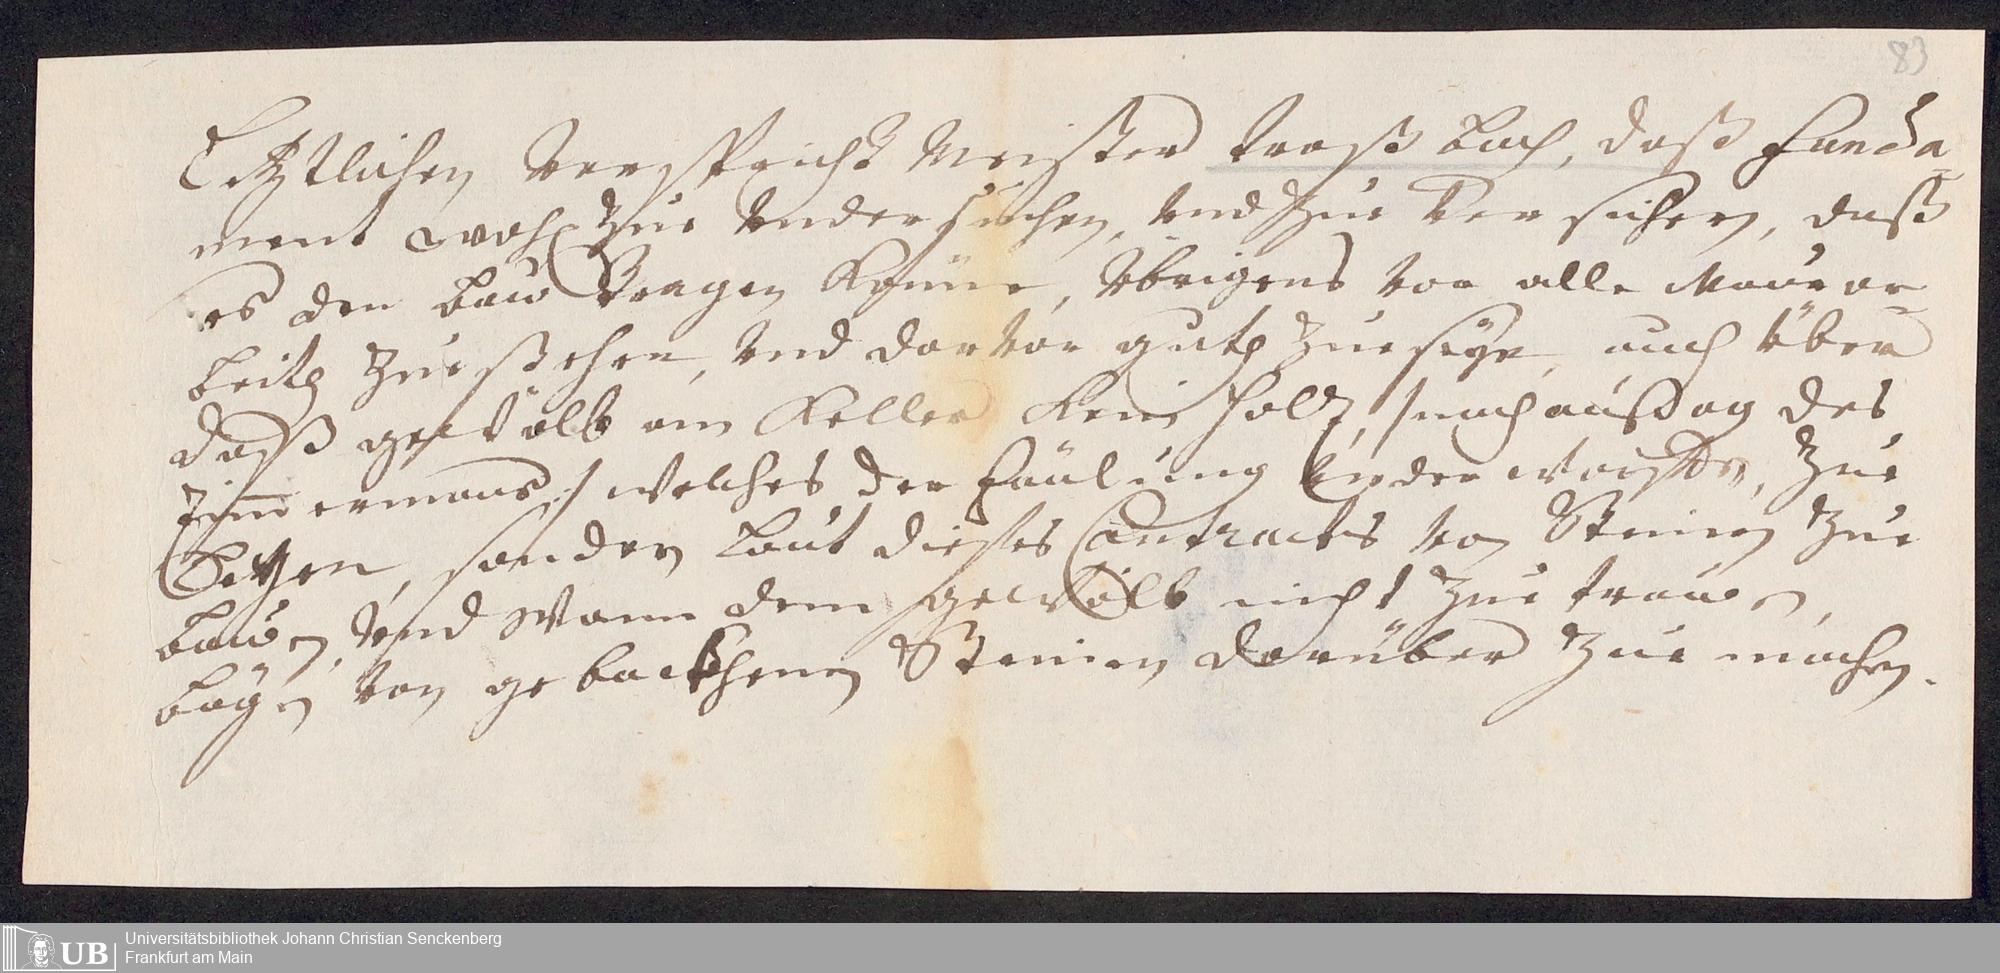 83
Letztlichen verspricht Meister Kraßbach, daß Funda-
ment wohl zue undersuchen, und zue versichern, daß
es den Bauw tragen könne, übrigens vor alle Maurar-
beith zue stehen, und darvor guth zue seye, auch über
daß gewölb am Keller kein holz, /: nach außag des
Zimmermans :/ welches der Fäulung underworffen, zue
Setzen, sondern laut dieses Contracts von Steinen zue
bauwen, und wann dem gewölb nicht zue trauwen,
bögen von gebackhenen Steinen darüber zue machen.
Universitätsbibliothek Johann Christian Senckenberg
Frankfurt am Main
UB